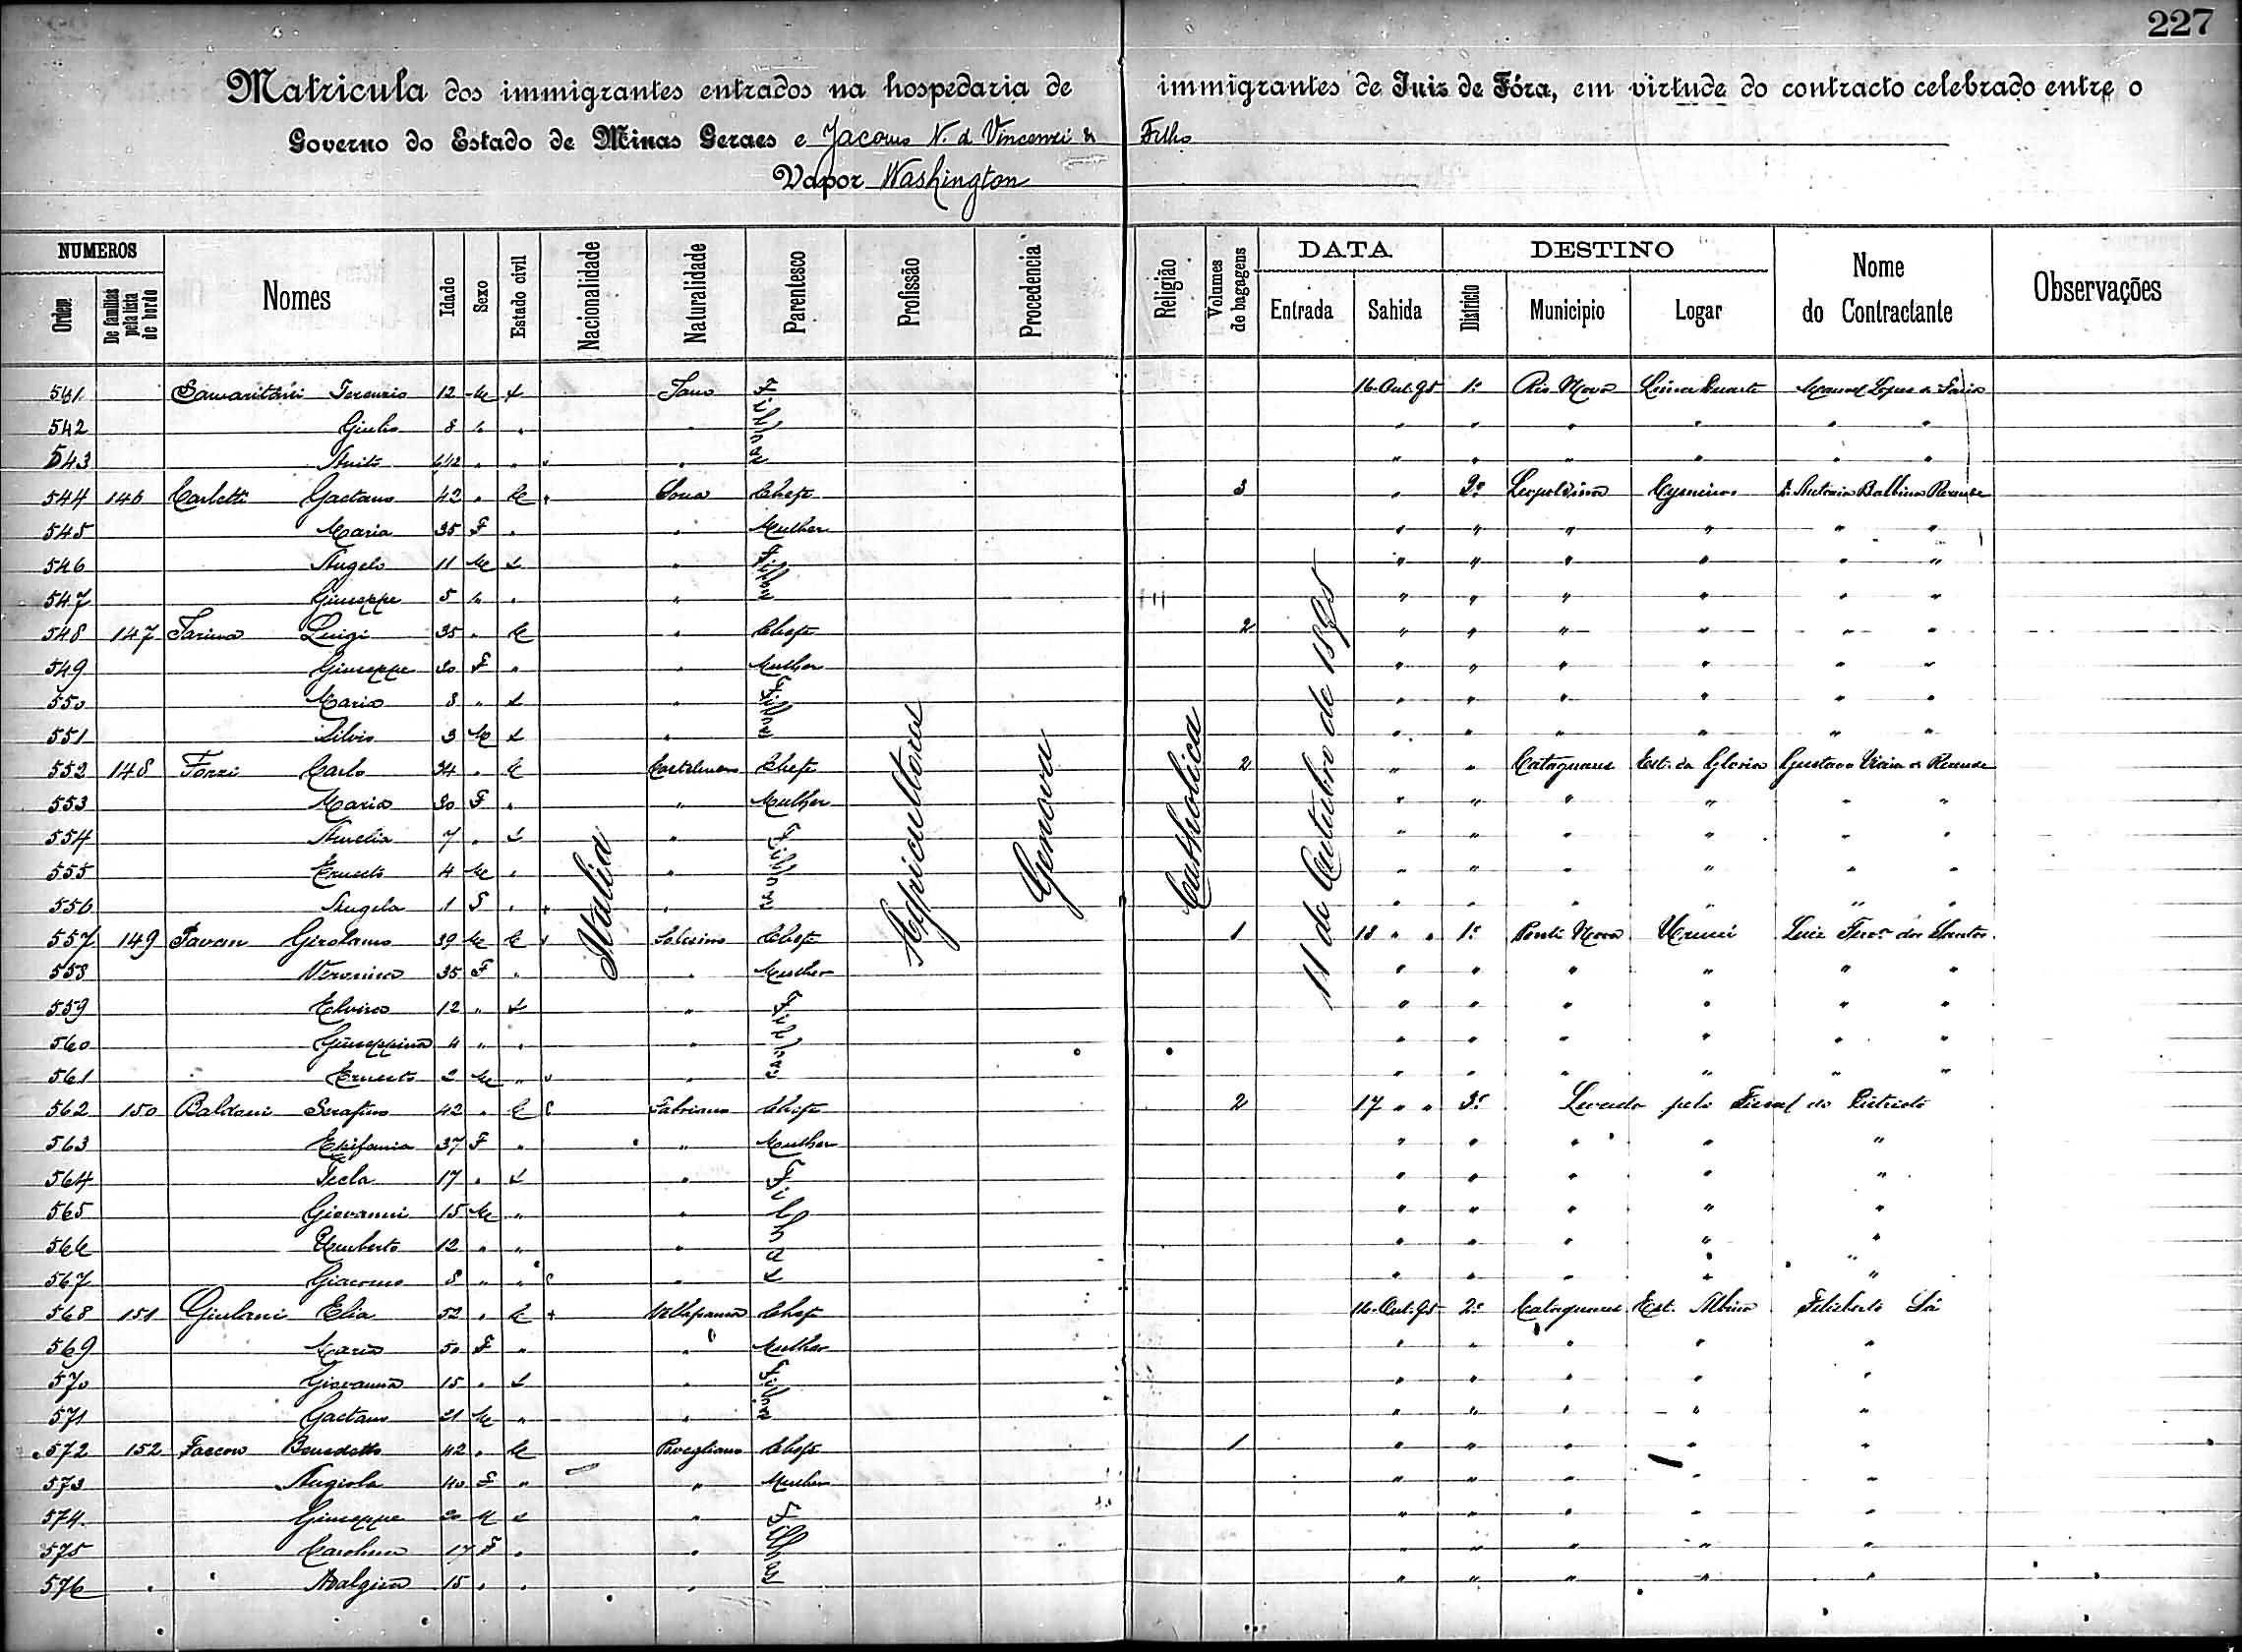 227
Matricula dos immigrantes entrados na hospedaria de immigrantes de Juiz de Fóra, em virtude do contracto celebrado entre o
Governo do Estado de Minas Geraes e Jacomo N. d Vincenzi & Filho
Vapor Washington
NUMEROS Nomes Idade Sexo Estado civil Nacionalidade Naturalidade Parentesco Profissão Procedencia Religião Volumes de bagagens DATA DESTINO Nome do Contractante Observações
Orden De familias pela lista de bordo Entrada Sahida Districto Municipio Logar
Italia Agricultora Genova Catholica 11 de Outubro de 1895
541 Samaritani Terenzio 12 M S Filhos 16 Out. 95 1º Rio Novo Lima Duarte Manoel Lopes de Faria
542 Giulio 8 " " " " " " " " "
543 " " " " " " " " "
544 146 Carletti Gaetano 42 " C Chefe 3 " 2º Leopoldina D. Antonia Balbina Rezende
545 Maria 35 F " " Mulher " " " " " "
546 Angelo 11 M S " Filhos " " " " " "
547 Giuseppe 5 " " " " " " " " "
548 147 Farina Luigi 35 " C " Chefe 2 " " " " " "
549 Giuseppe 30 F " " Mulher " " " " " "
550 Maria 8 " S " Filhos " " " " " "
551 Silvio 3 M S " " " " " " "
552 148 Forzi Carlo 34 " C Chefe 2 " " Cataguazes Est. da Gloria Gustavo Vieira de Rezende
553 Maria 30 F " " Mulher " " " " " "
554 Aurelia 7 " S " Filhos " " " " " "
555 Ernesto 4 M " " " " " " " "
556 Angela 1 F " " " " " " " "
557 149 Pavan Girolamo 39 M C Solesino Chefe 1 18 " " 1º Ponte Nova Urucú Luiz Ferr.ª dos Santos
558 Veronica 35 F " " Mulher " " " " " "
559 Elvira 12 " S " Filhos " " " " " "
560 Giuseppina 4 " " " " " " " " "
561 Ernesto 2 M " " " " " " " "
562 150 Baldoni Serafino 42 " C Fabriano Chefe 2 17 " " 3º Levado pelo Fiscal do Districto
563 Epifania 37 F " " Mulher " " " " "
564 Tecla 17 " S " Filhos " " " " "
565 Giovanni 15 M " " " " " " "
566 Umberto 12 " " " " " " " "
567 Giacomo 8 " " " " " " " "
568 151 Giulani Elia 52 " C Chefe 16 Out. 95 2º Cataguazes Est. Albino Feliberto Sá
569 Maria 50 F " " Mulher " " " " "
570 Giovanna 15 " S " Filhos " " " " "
571 Gaetano 21 M " " " " " " "
572 152 Faccon Benedetto 42 " C Povegliano Chefe 1 " " " " "
573 Angiola 40 F " " Mulher " " " " "
574 Giuseppe 20 M S " Filhos " " " " "
575 Carolina 17 F " " " " " " "
576 15 " " " " " " " "